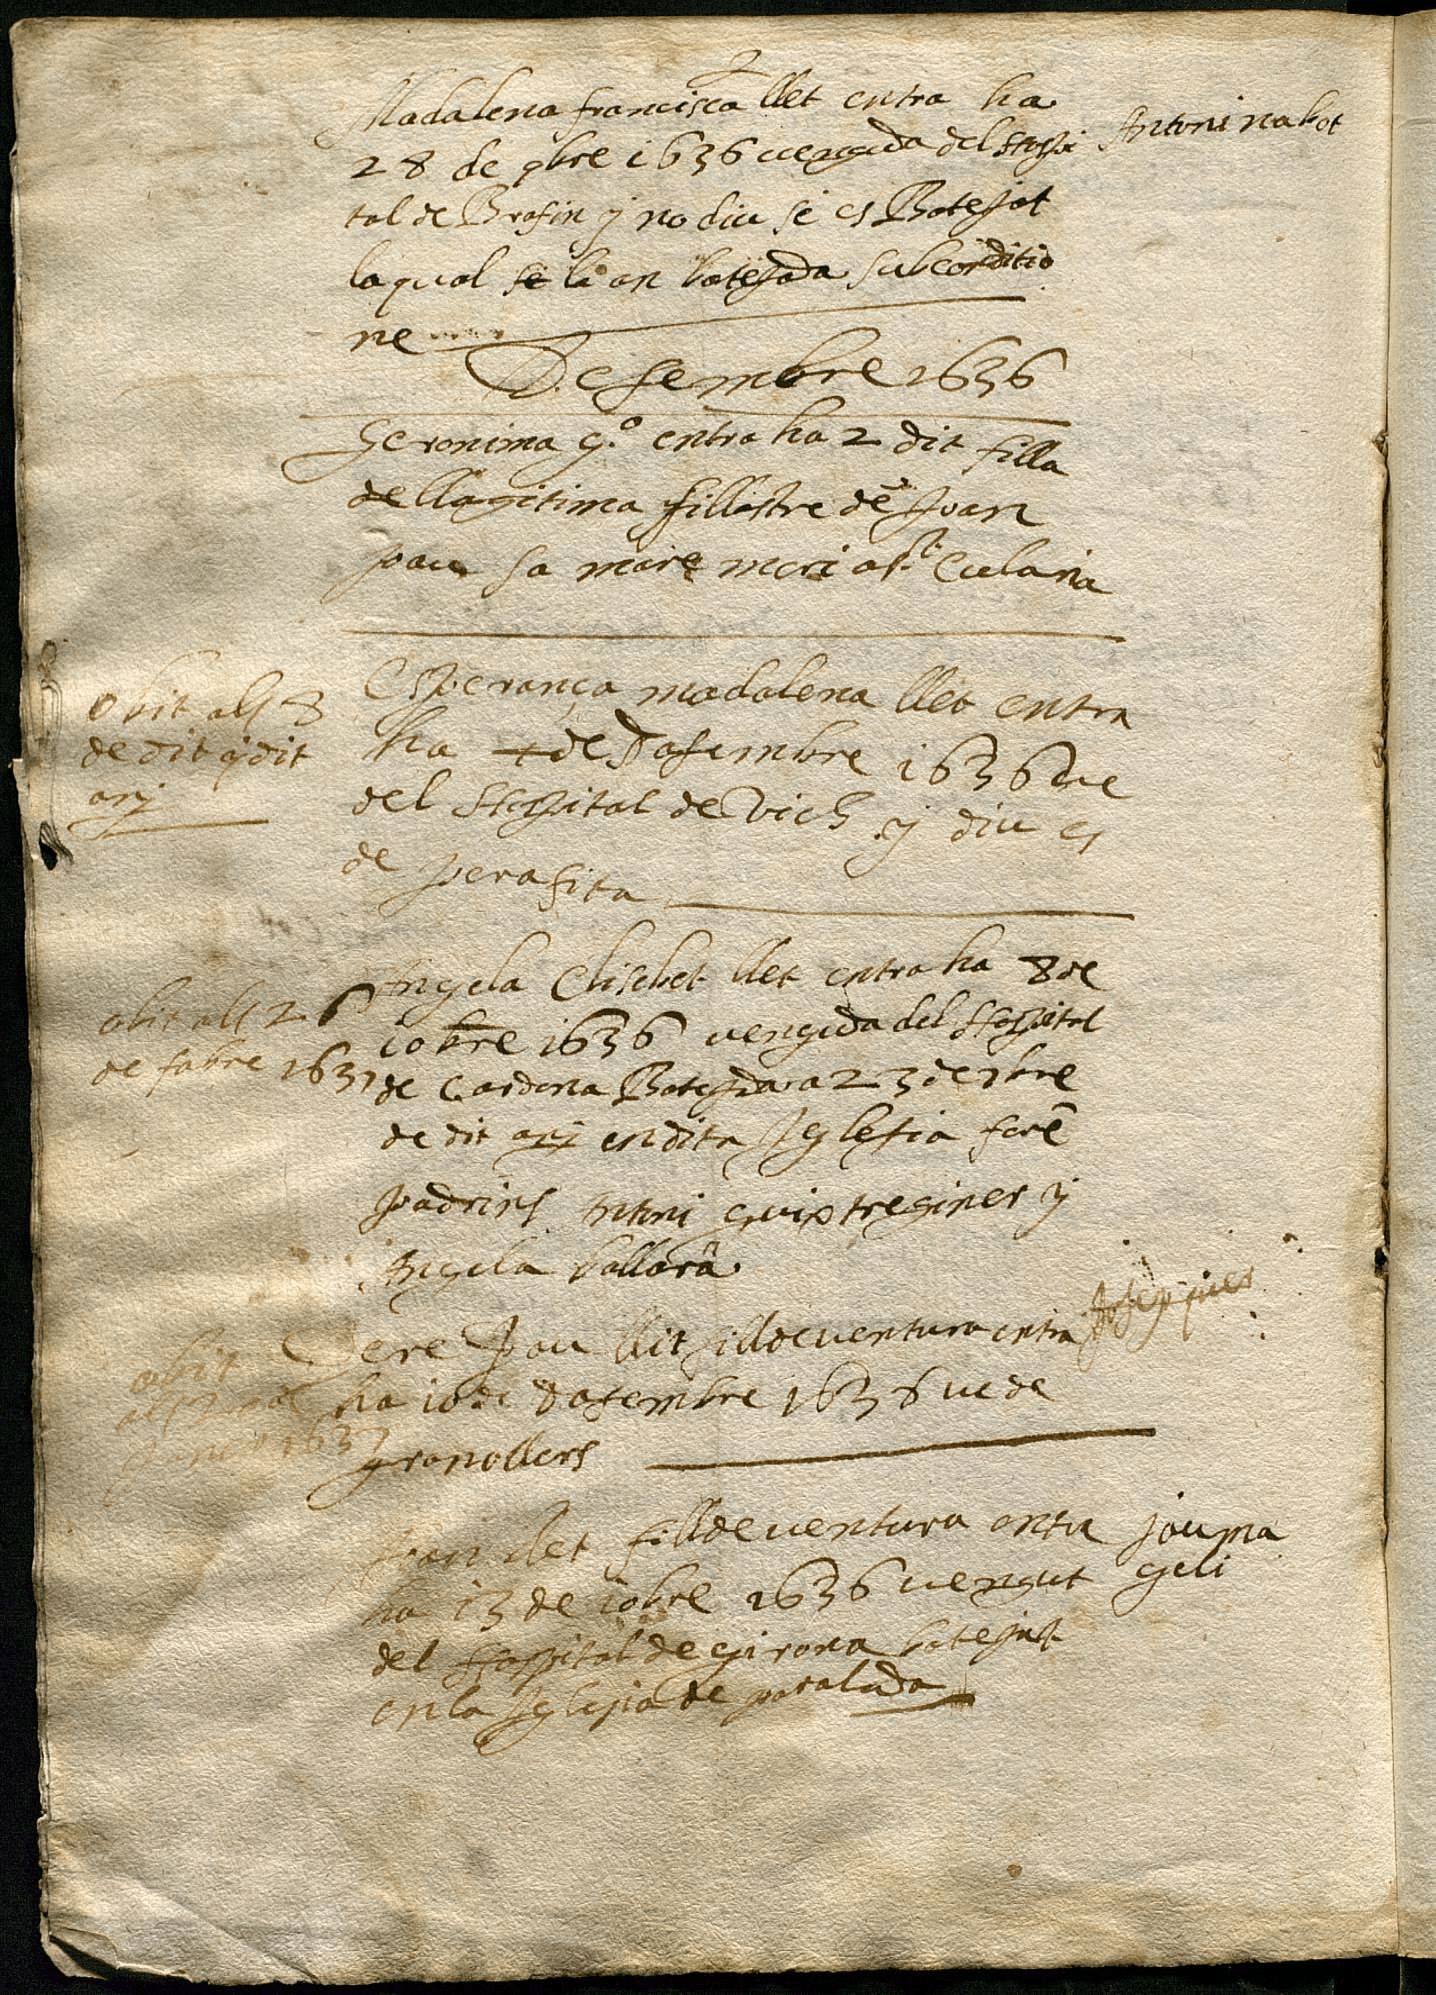 Madalena francisca llet entra ha
28 de 9bre 1636 venguda del Hospi
Antoni nabot
tal de Brafin y no diu si es Batejat
la qual se la an batejada subconditio
ne
Desembre 1636
Geronima g.º entra ha 2 dit filla
de llagitima fillastre de Joan
pau sa mare mori a s.ta Eularia
Esperança madalena llet entra
ha 4 de Dasembre 1636 ve
del Hospital de Vich y diu es
de perafita
obit als 8
de dit y dit
any
Angela Elisebet llet entra ha 8 de
10bre 1636 venguda del Hospital
de Cardona Batejada a 23 de 7bre
de dit any en dita Iglesia forẽ
padrins Antoni guix treginer y
Angela ballarã
obit als 26
de fabre 1637
Pere Pau llit fill de ventura entra
ha 10 de Dasembre 1636 ve de
granollers
Josep
obit
1637
Joan llet fill de ventura entra
ha 13 de 10bre 1636 vengut
del Hospital de girona batejat
en la Iglesia de paralada
jauma
geli